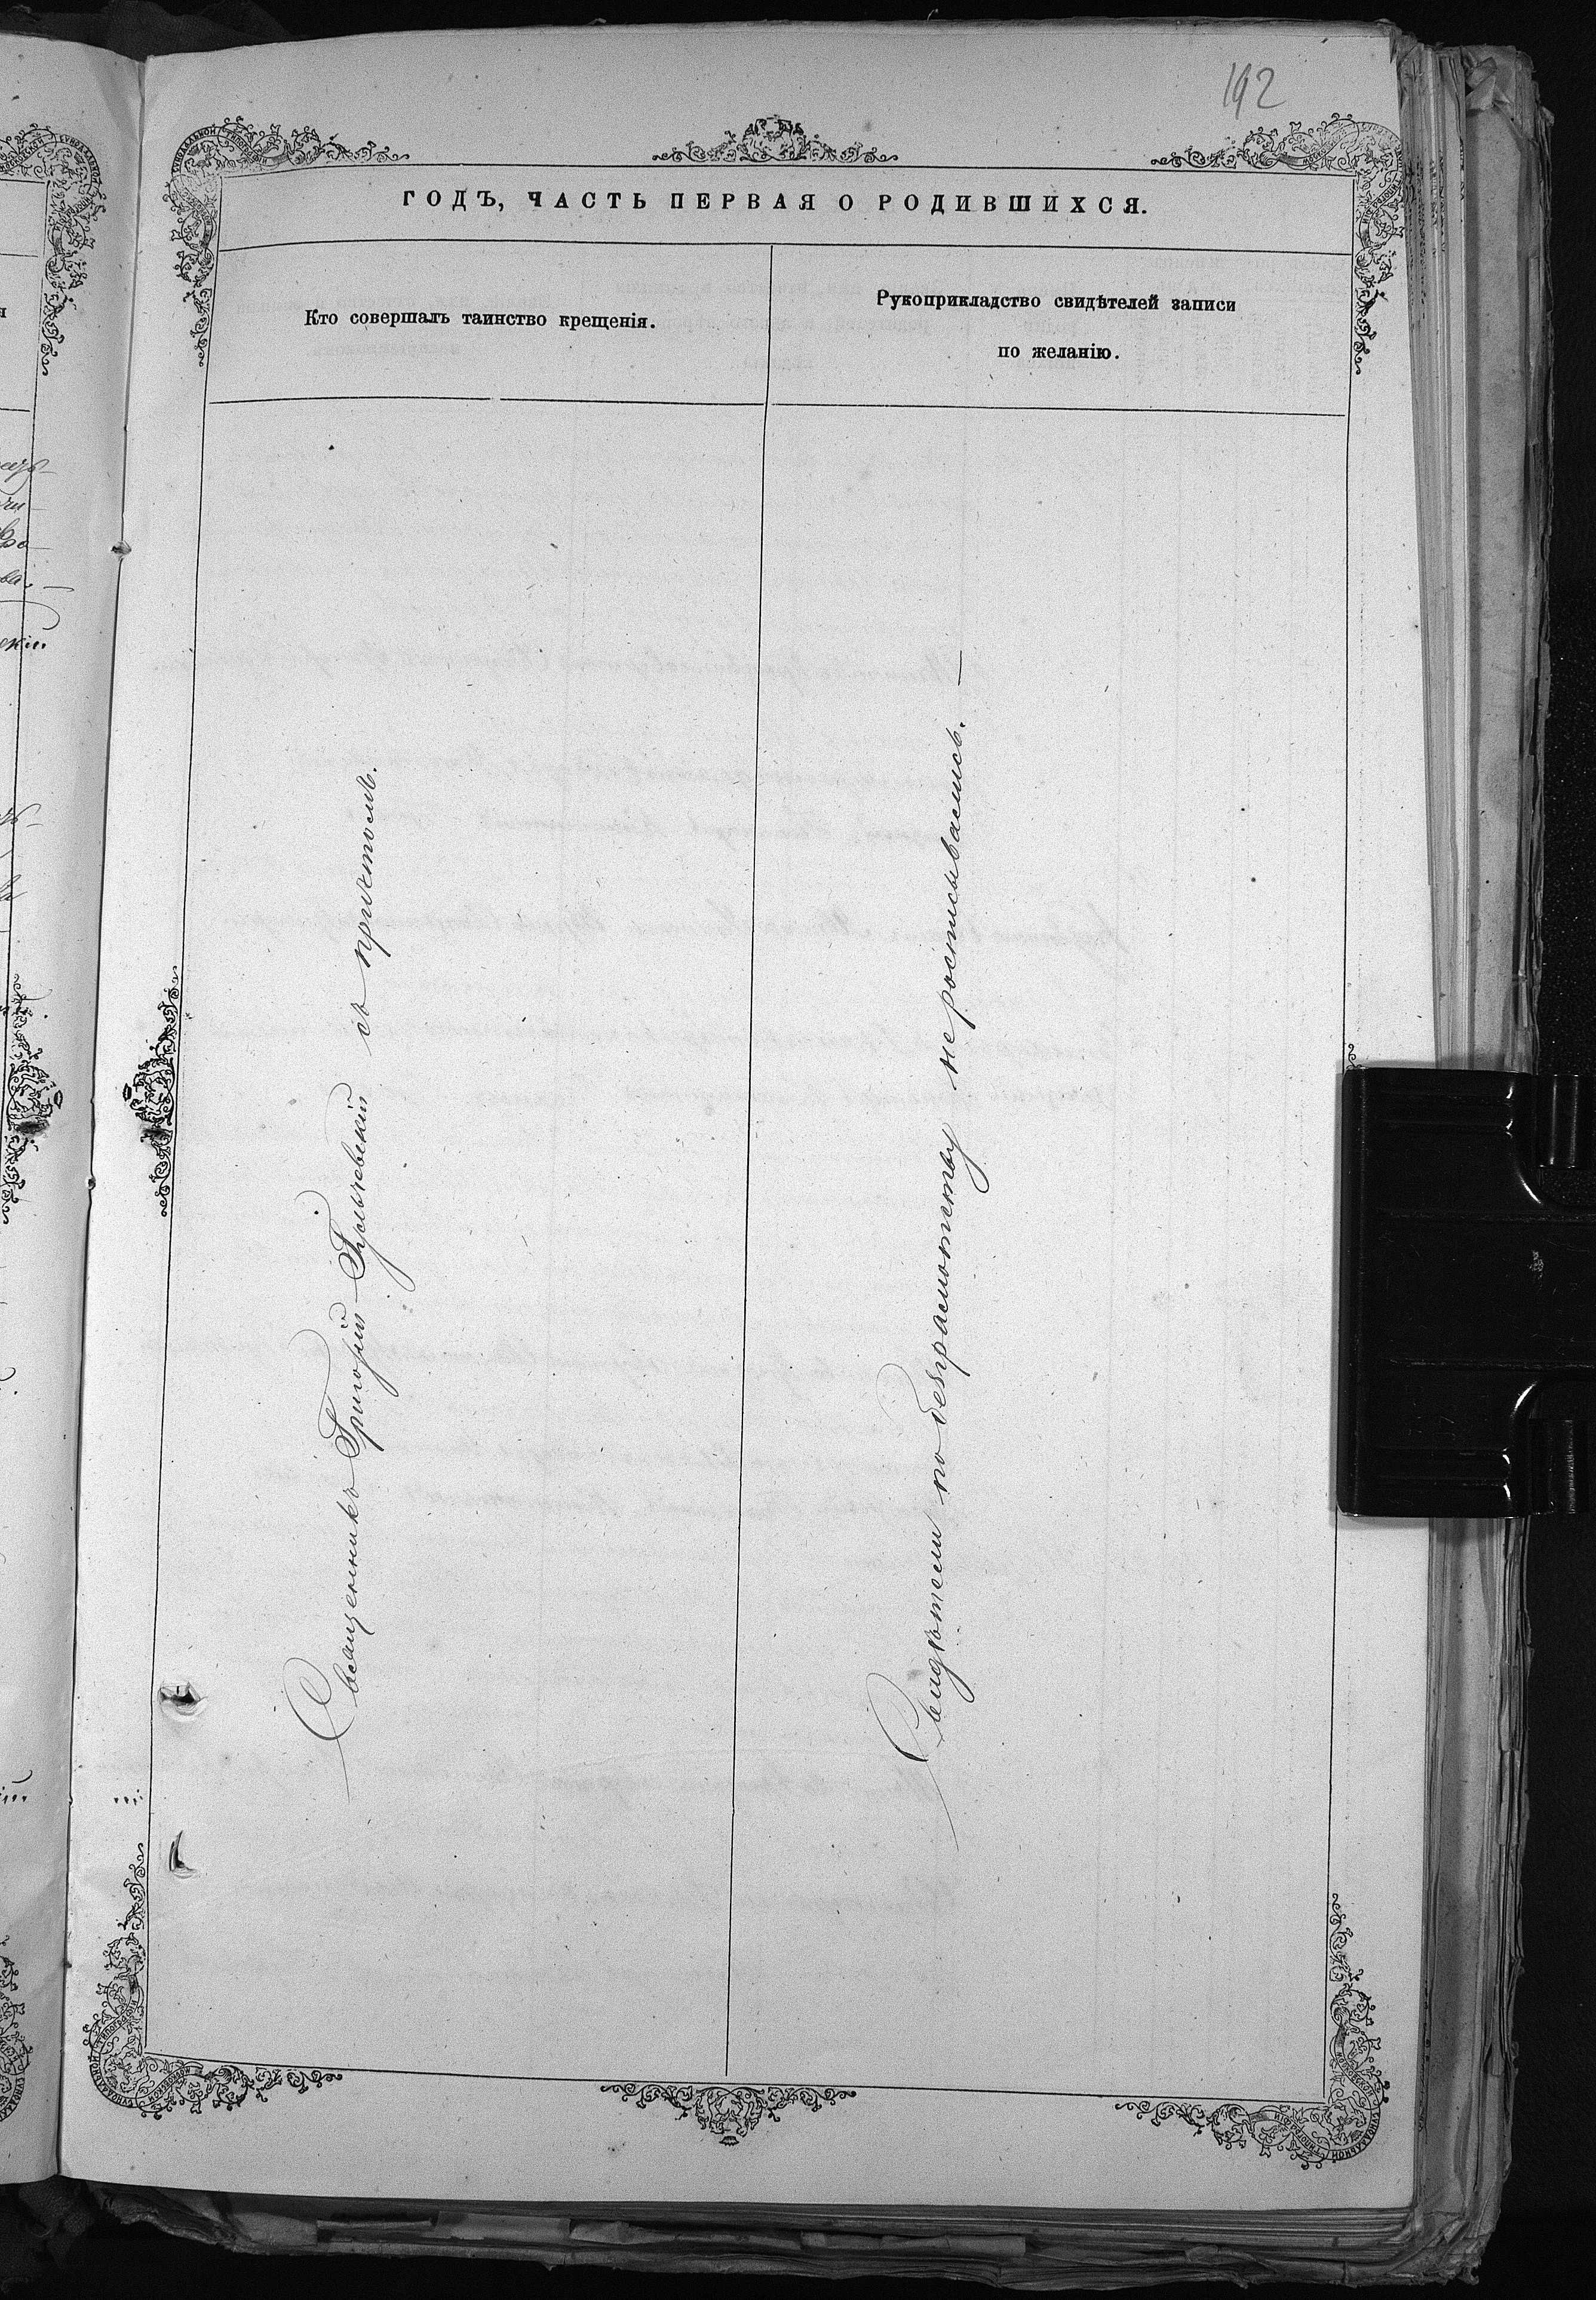 192
ГОДЪ, ЧАСТЬ ПЕРВАЯ О РОДИВШИХСЯ.
Кто совершалъ таинство крещенія.
Рукоприкладство свидѣтелей записи
по желанію.
Священникъ Григорій съ причтомъ.
Свидѣтели по безграмотству не росписывались. —